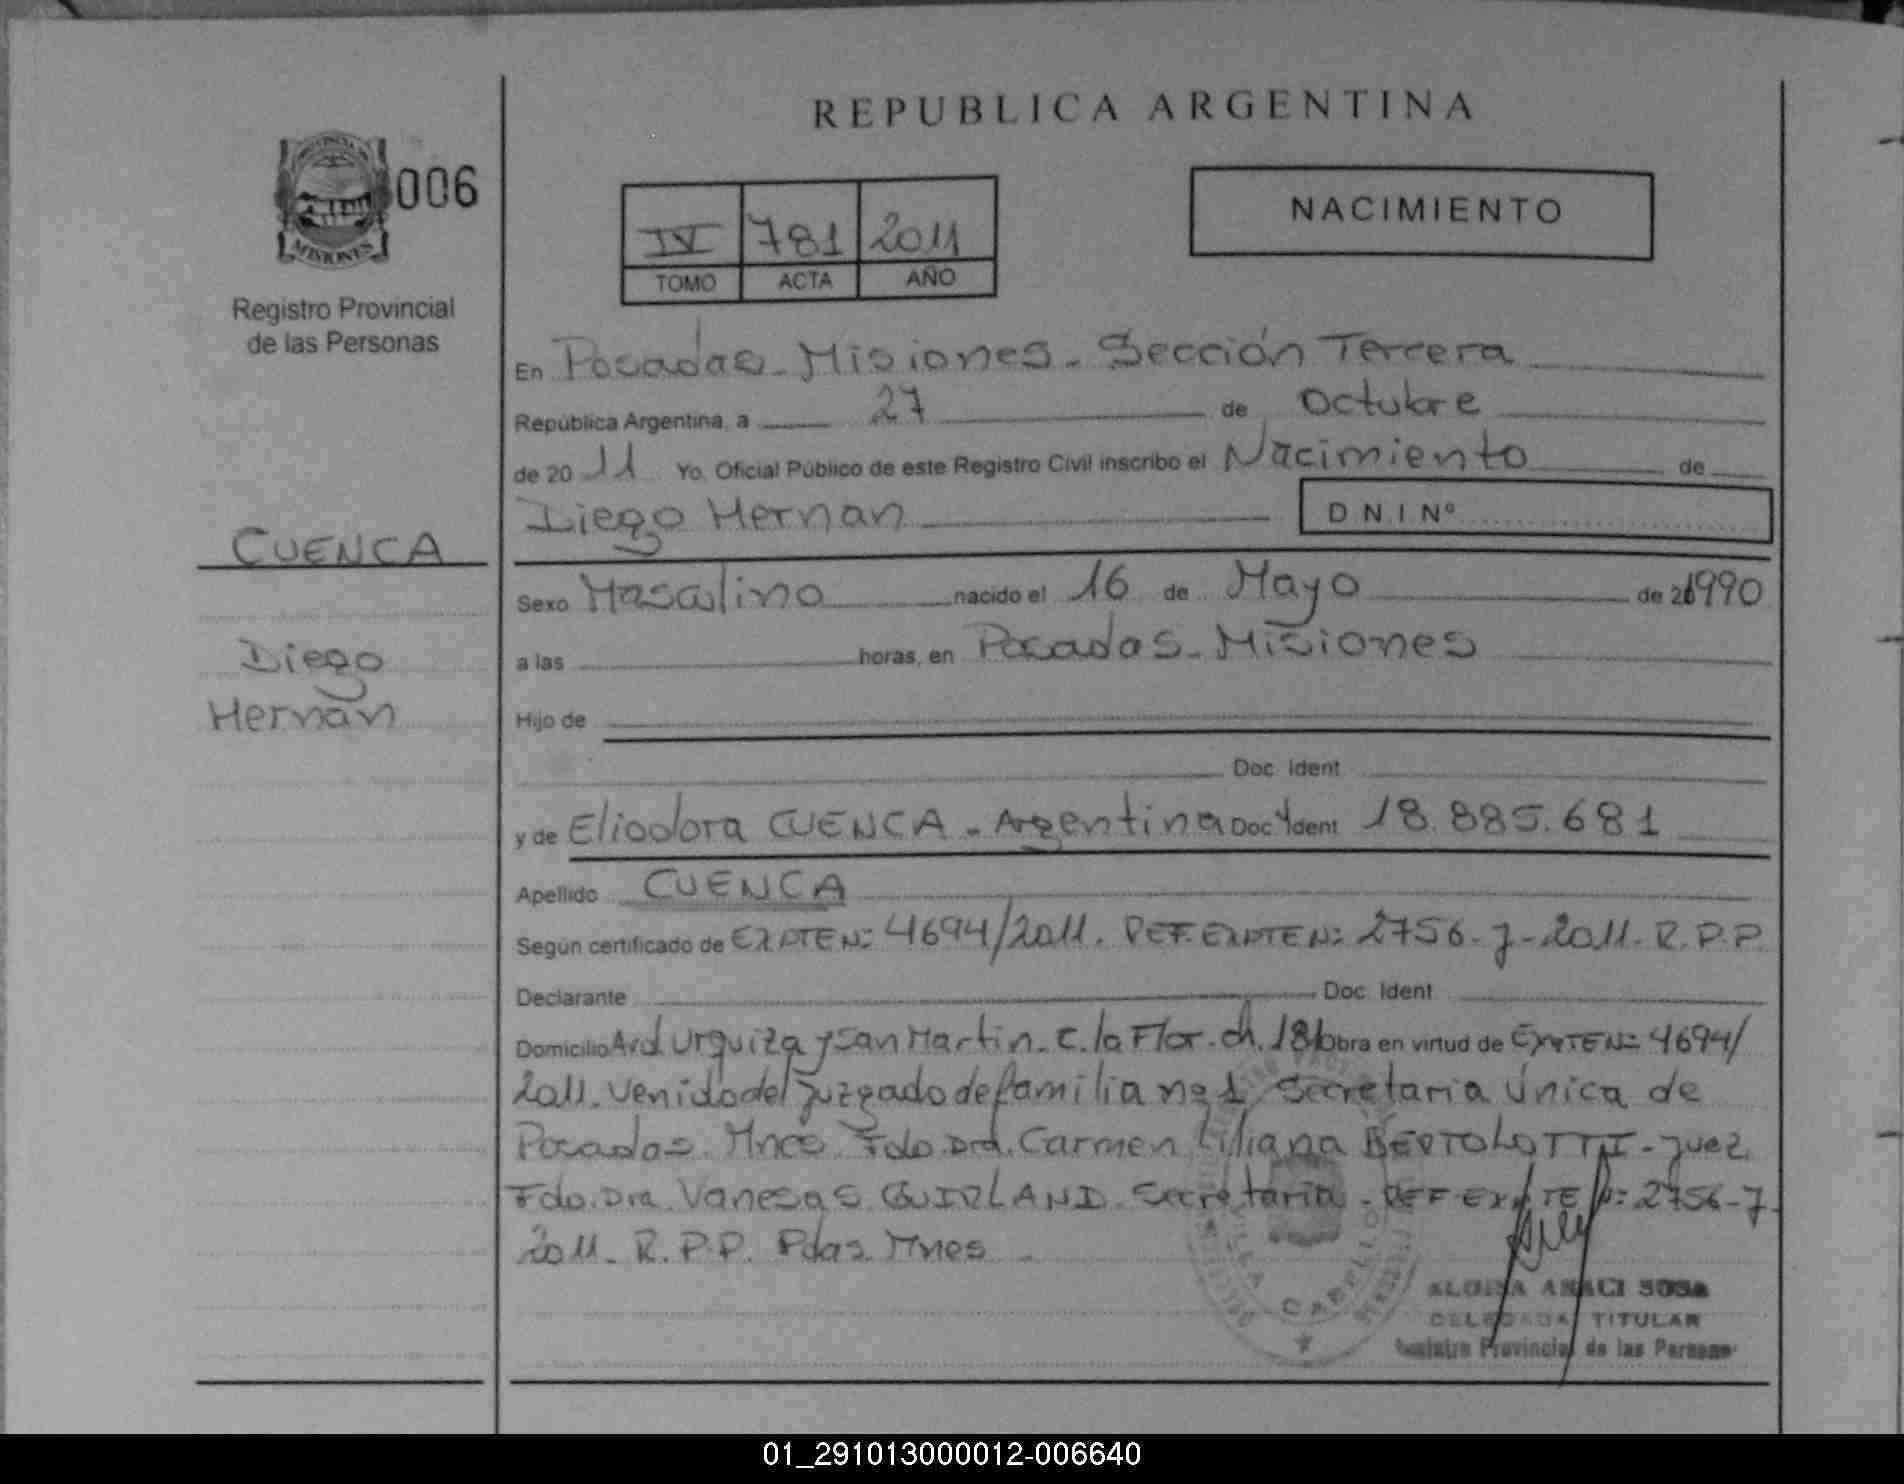 REPUBLICA ARGENTINA
006
MISIONES
Registro Provincial
de las Personas
IV 781 2011
TOMO ACTA AÑO
NACIMIENTO
En Posadas - Misiones - Sección Tercera
República Argentina, a 27 de Octubre
de 20 11 Yo, Oficial Público de este Registro Civil inscribo el Nacimiento de
Diego Hernan
D N.I Nº
CUENCA
Diego
Hernán
Sexo Masculino nacido el 16 de Mayo de 1990
a las horas, en Posadas - Misiones
Hijo de
Doc. Ident.
y de Eliodora CUENCA - Argentina Doc Ident 18.885.681
Apellido CUENCA
Según certificado de EXPTE Nº: 4694/2011. REF. EXPTE Nº: 2756-J-2011- R.P.P.
Declarante Doc. Ident
Domicilio Avd. Urquiza y San Martin - C. la Flor. ch. 181 Obra en virtud de EXPTE Nº 4694/
2011. Venido del Juzgado de familia nº 1, Secretaria Única de
Posadas. Mnes. Fdo. Dra. Carmen Liliana BERTOLOTTI - Juez.
Fdo. Dra. Vanesa S. GUIRLAND. Secretaria - REF EXPTE Nº: 2756-J-
2011 - R.P.P. Pdas. Mnes
ALOISA ANACI SOSA
DELEGADA TITULAR
Registro Provincial de las Personas
01_291013000012-006640